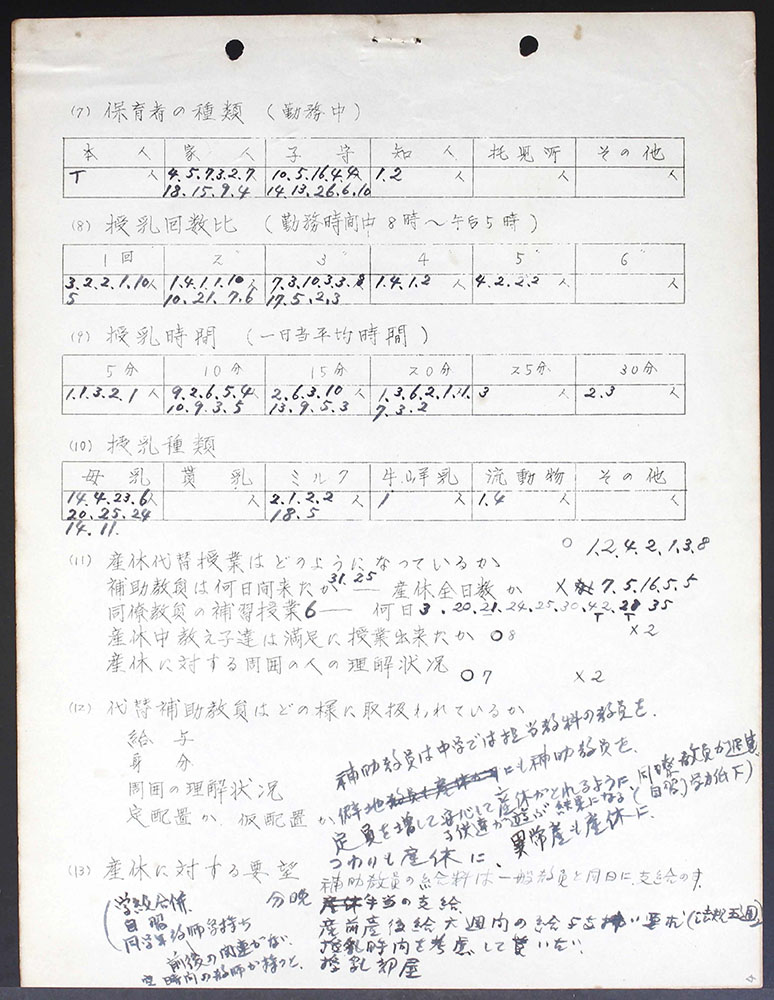 (7) 保育者の種類 (勤務中)
本人 家人 子守 知人 托児所 その他
T 人 4.5.7.3.2.7 10.5.16.4.4 1.2 人 人 人
18.15.9.4 14.13.26.6.10
(8) 授乳回数比 (勤務時間中8時〜午后5時)
1回 2〃 3〃 4 5〃 6〃
3.2.2.1.10人 1.4.1.1.10 7.3.10.3.3.8 1.4.1.2 人 4.2.2.2 人 人
5 10.21.7.6 17.5.2.3
(9) 授乳時間 (一日当平均時間)
5分 10分 15分 20分 25分 30分
1.1.3.2.1 人 9.2.6.5.4 2.6.3.10 人 1.3.6.2.1.11. 3 人 2.3 人
10.9.3.5 13.9.5.3 7.3.2
(10) 授乳種類
母乳 貰乳 ミルク 牛山羊乳 流動物 その他
14.4.23.6人 人 2.1.2.2 1 人 1.4 人 人
20.25.24 18.5
14.11.
○ 1.2.4.2.1.3.8
(11) 産休代替授業はどのようになっているか
補助教員は何日間来たか 31.25 ── 産休全日数か × 7.5.16.5.5
同僚教員の補習授業 6 ── 何日 3.20.21.24.25.30.42.28 35
産休中教え子達は満足に授業出来たか ○8 ×2
産休に対する周囲の人の理解状況 ○7 ×2
(12) 代替補助教員はどの様に取扱われているか
給与
身分
周囲の理解状況
定配置か、仮配置か
補助教員は中学では担当教科の教員を.
僻地にも補助教員を.
定員を増して安心して産休がとれるように
子供達が遊ぶ結果になる(自習)学力低下)
つわりも産休に、異常産も産休に.
(13) 産休に対する要望
補助教員の給料は一般教員と同日に支給のす.
分娩手当の支給
産前産後給六週間の給与支払い要求(
授乳時間を考慮して貰いたい
授乳部屋
(学級合併
自習
同学年教師分持ち
前後の関連がない
空時間の教師が持つと.